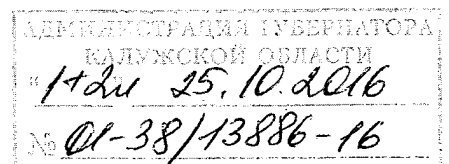 АДМИНИСТРАЦИЯ ГУБЕРНАТОРА
КАЛУЖСКОЙ ОБЛАСТИ
"1+2л" 25.10.2016
№ 01-38/13886-16